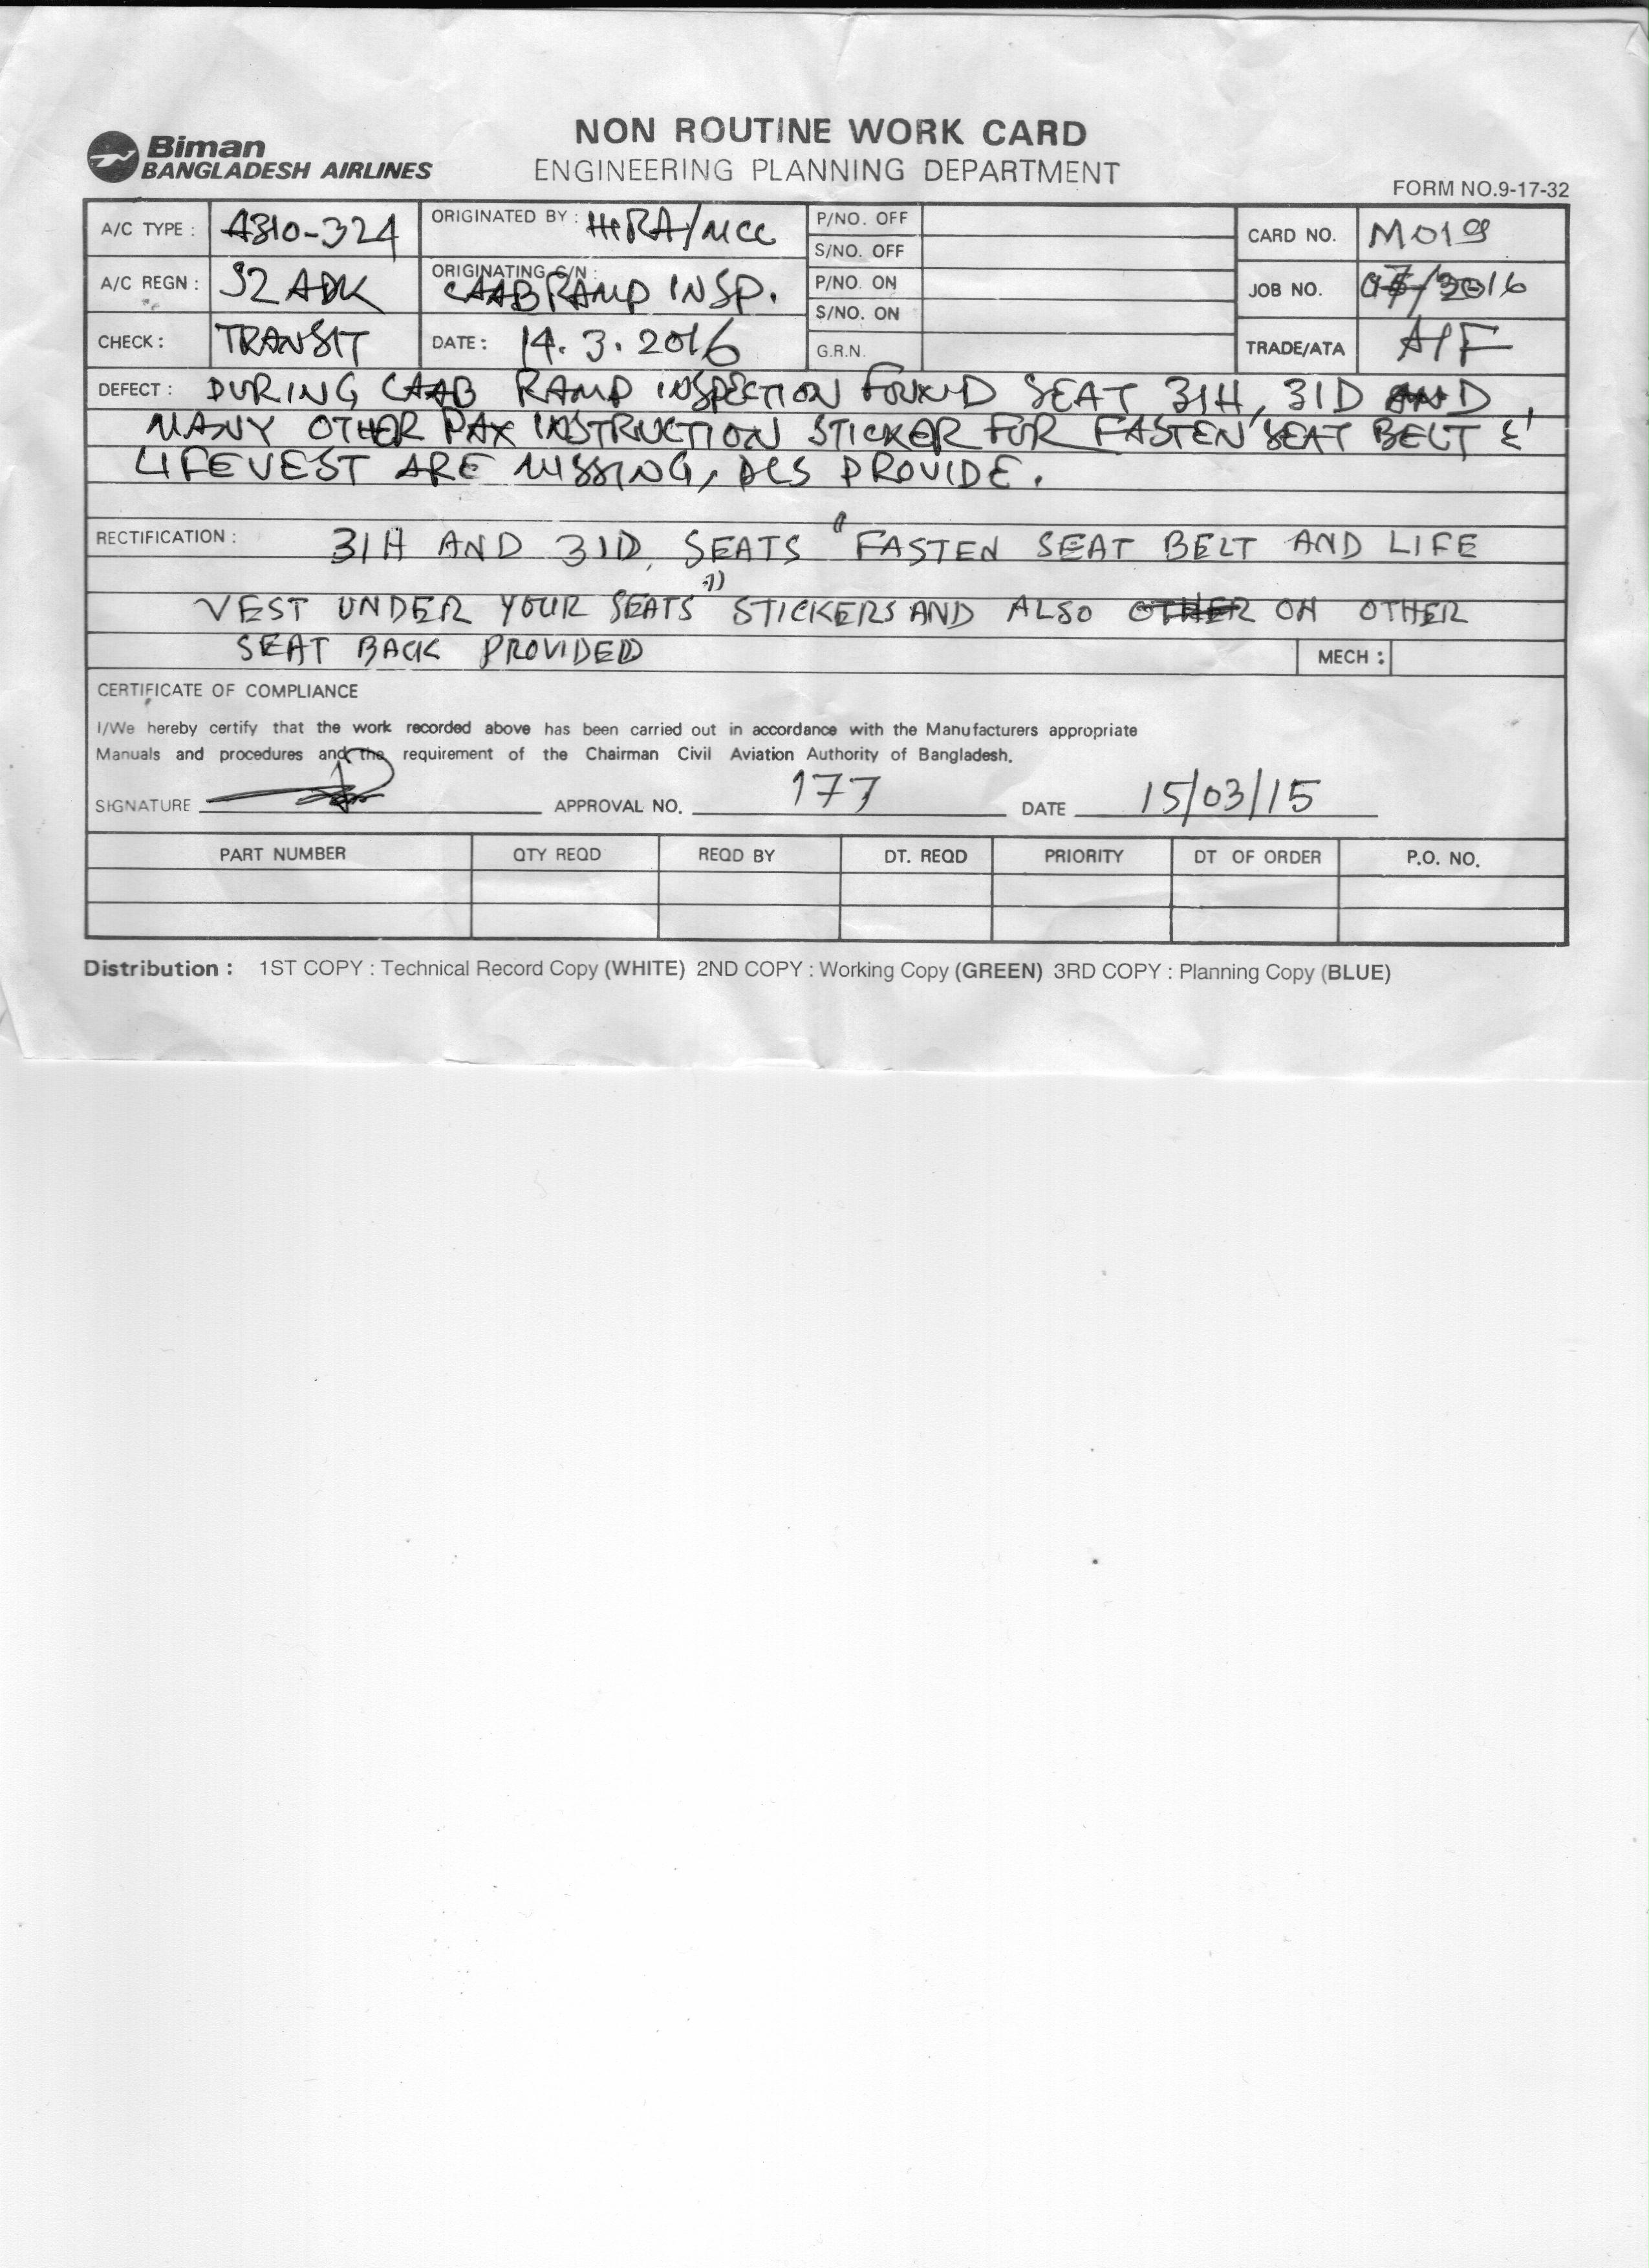 Biman
BANGLADESH AIRLINES
NON ROUTINE WORK CARD
ENGINEERING PLANNING DEPARTMENT
FORM NO.9-17-32
A/C TYPE : A310-324
ORIGINATED BY : HIRA/MCC
P/NO. OFF
S/NO. OFF
CARD NO. M019
A/C REGN : S2 ADK
ORIGINATING C/N : CAAB RAMP INSP.
P/NO. ON
S/NO. ON
JOB NO. /2016
CHECK : TRANSIT
DATE : 14.3.2016
G.R.N.
TRADE/ATA A/F
DEFECT : DURING CAAB RAMP INSPECTION FOUND SEAT 31H, 31D AND
MANY OTHER PAX INSTRUCTION STICKER FOR FASTEN SEAT BELT &
LIFEVEST ARE MISSING, PLS PROVIDE.
RECTIFICATION : 31H AND 31D, SEATS "FASTEN SEAT BELT AND LIFE
VEST UNDER YOUR SEATS" STICKERS AND ALSO OTHER ON OTHER
SEAT BACK PROVIDED
MECH :
CERTIFICATE OF COMPLIANCE
I/We hereby certify that the work recorded above has been carried out in accordance with the Manufacturers appropriate
Manuals and procedures and the requirement of the Chairman Civil Aviation Authority of Bangladesh.
SIGNATURE APPROVAL NO. 177 DATE 15/03/15
PART NUMBER QTY REQD REQD BY DT. REQD PRIORITY DT OF ORDER P.O. NO.
Distribution : 1ST COPY : Technical Record Copy (WHITE) 2ND COPY : Working Copy (GREEN) 3RD COPY : Planning Copy (BLUE)